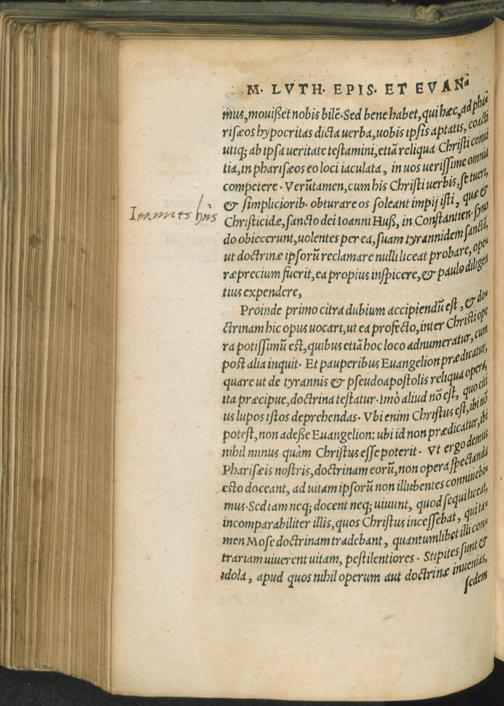 M. LVTH. EPIS. ET EVAN-
mus, mouißet nobis bilē. Sed bene habet, qui hæc, ad pha
risæos hypocritas dicta uerba, uobis ipsis aptatis, coacti
utiq; ab ipsa ueritate testamini, etiā reliqua Christi conui
tia, in pharisæos eo loci iaculata, in uos uerissime omnia
competere. Verūtamen, cum his Christi uerbis, se tueri,
& simpliciorib. obturare os soleant impij isti, quæ &
Ioannes hus
Christicidæ, sancto dei Ioanni Huß, in Constantien. syno
do obiecerunt, uolentes per ea, suam tyrannidem sancta,
ut doctrinæ ipsorū reclamare nulli liceat probare, ope
ræprecium fuerit, ea propius inspicere, & paulo diligen
tius expendere,
Proinde primo citra dubium accipiendū est, & do
ctrinam hic opus uocari, ut ea profecto, inter Christi ope
ra potissimū est, quibus etiā hoc loco adnumeratur, cum
post alia inquit. Et pauperibus Euangelion prædicatur,
quare ut de tyrannis & pseudoapostolis reliqua opera,
ita præcipue, doctrina testatur. Imò aliud nō est, quo citi
us lupos istos deprehendas. Vbi enim Christus est, ibi nō
potest, non adeße Euangelion: ubi id non prædicatur, ibi
nihil minus quàm Christus esse poterit. Vt ergo demus
Pharisæis nostris, doctrinam eorū, non opera spectanda
esto doceant, ad uitam ipsorū non illubentes conniuebi
mus. Sed iam neq; docent neq; uiuunt, quod sequi liceat,
incomparabiliter illis, quos Christus incessebat, qui ta-
men Mose doctrinam tradebant, quantumlibet illi con-
trariam uiuerent uitam, pestilentiores. Stipites sunt &
idola, apud quos nihil operum aut doctrinæ inuenias,
sedem